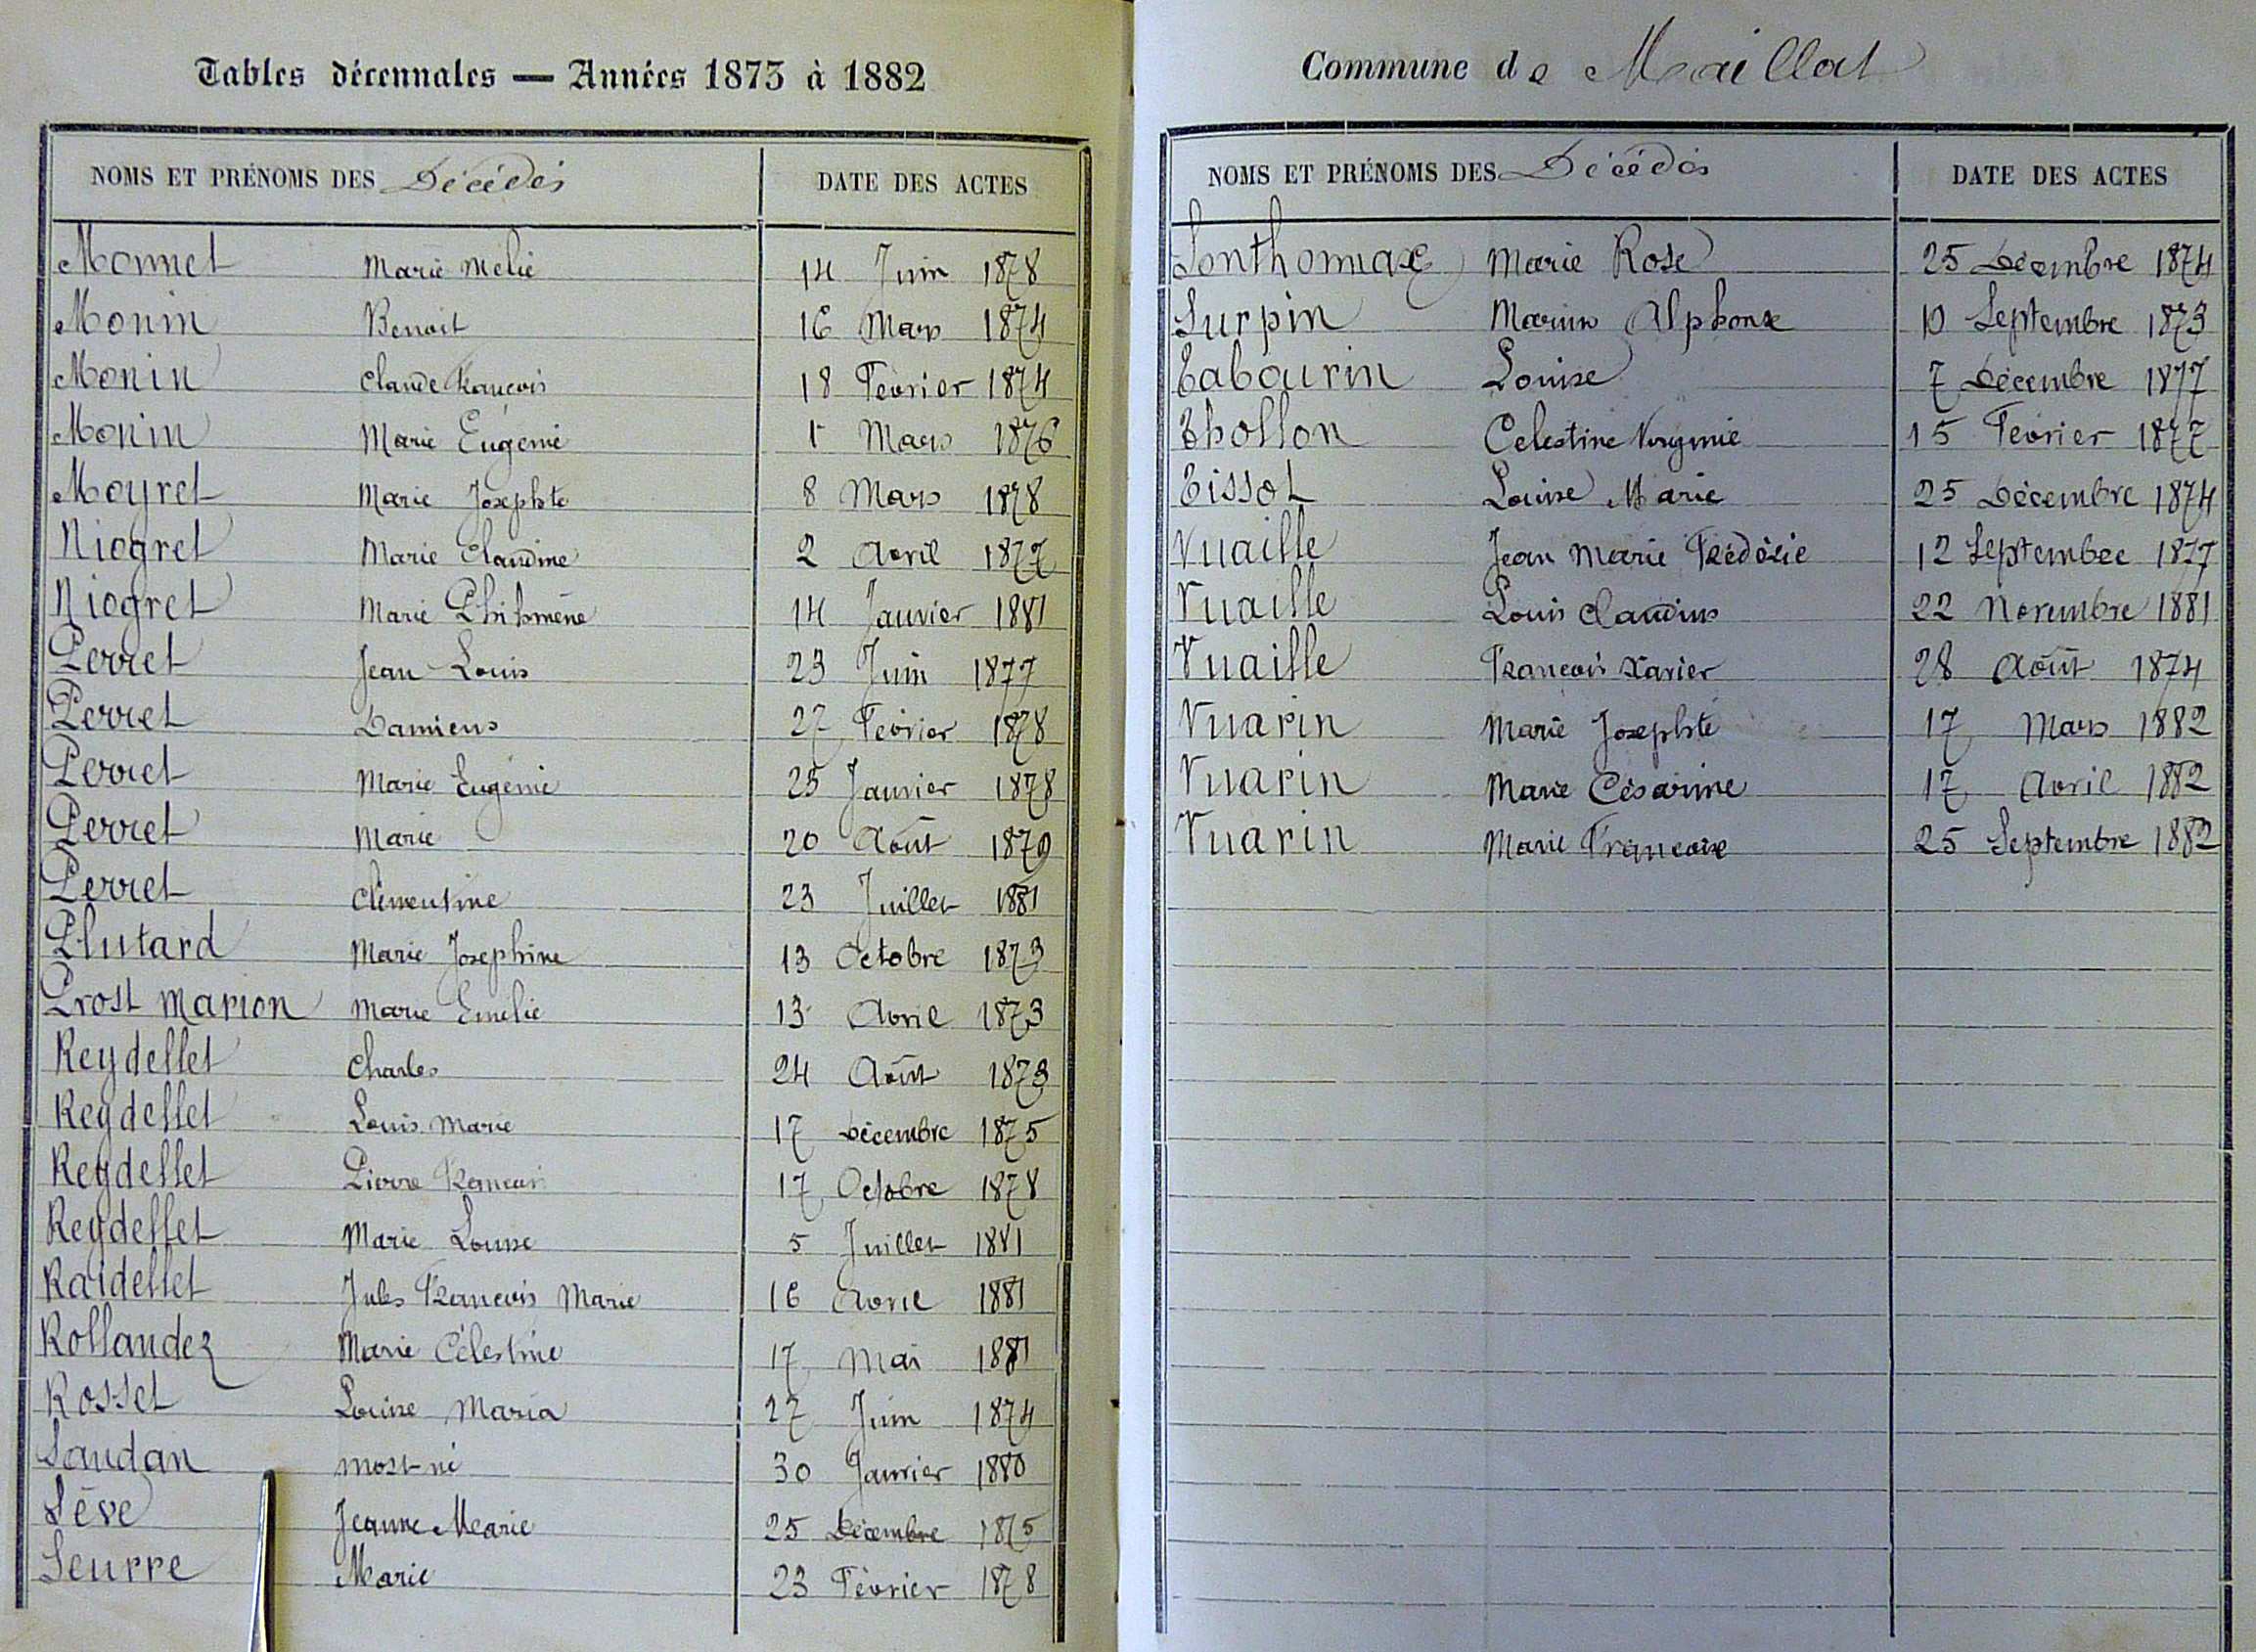 Tables décennales — Années 1873 à 1882
NOMS ET PRÉNOMS DES Décédés DATE DES ACTES
Monnet Marie Mélie 14 Juin 1878
Monin Benoit 16 Mars 1874
Monin Claude François 18 Février 1874
Monin Marie Eugénie 1r Mars 1876
Moyret Marie Josephte 8 Mars 1878
Niogret Marie Claudine 2 Avril 1877
Niogret Marie Philomène 14 Janvier 1881
Perret Jean Louis 23 Juin 1877
Perret Damiens 27 Février 1878
Perret Marie Eugénie 25 Janvier 1878
Perret Marie 20 Août 1879
Perret Clémentine 23 Juillet 1881
Plutard Marie Josephine 13 Octobre 1873
Prost Marion Marie Emelie 13 Avril 1873
Reydellet Charles 24 Août 1873
Reydellet Louis Marie 17 Décembre 1875
Reydellet Pierre François 17 Octobre 1878
Reydellet Marie Louise 5 Juillet 1881
Raidellet Jules François Marie 16 Avril 1881
Rollandez Marie Célestine 17 Mai 1881
Rosset Louise Maria 27 Juin 1874
Saudan mort-né 30 Janvier 1880
Sève Jeanne Marie 25 Décembre 1875
Seurre Marie 23 Février 1878
Commune de Maillat
NOMS ET PRÉNOMS DES Décédés DATE DES ACTES
Sonthonnax Marie Rose 25 Décembre 1874
Surpin Marius Alphonse 10 Septembre 1873
Tabourin Louise 7 Décembre 1877
Thollon Celestine Virginie 15 Février 1877
Tissot Louise Marie 25 Décembre 1874
Vuaille Jean Marie Frédéric 12 Septembre 1877
Vuaille Louis Claudius 22 Novembre 1881
Vuaille François Xavier 28 Août 1874
Vuarin Marie Josephte 17 Mars 1882
Vuarin Marie Césarine 17 Avril 1882
Vuarin Marie Françoise 25 Septembre 1882